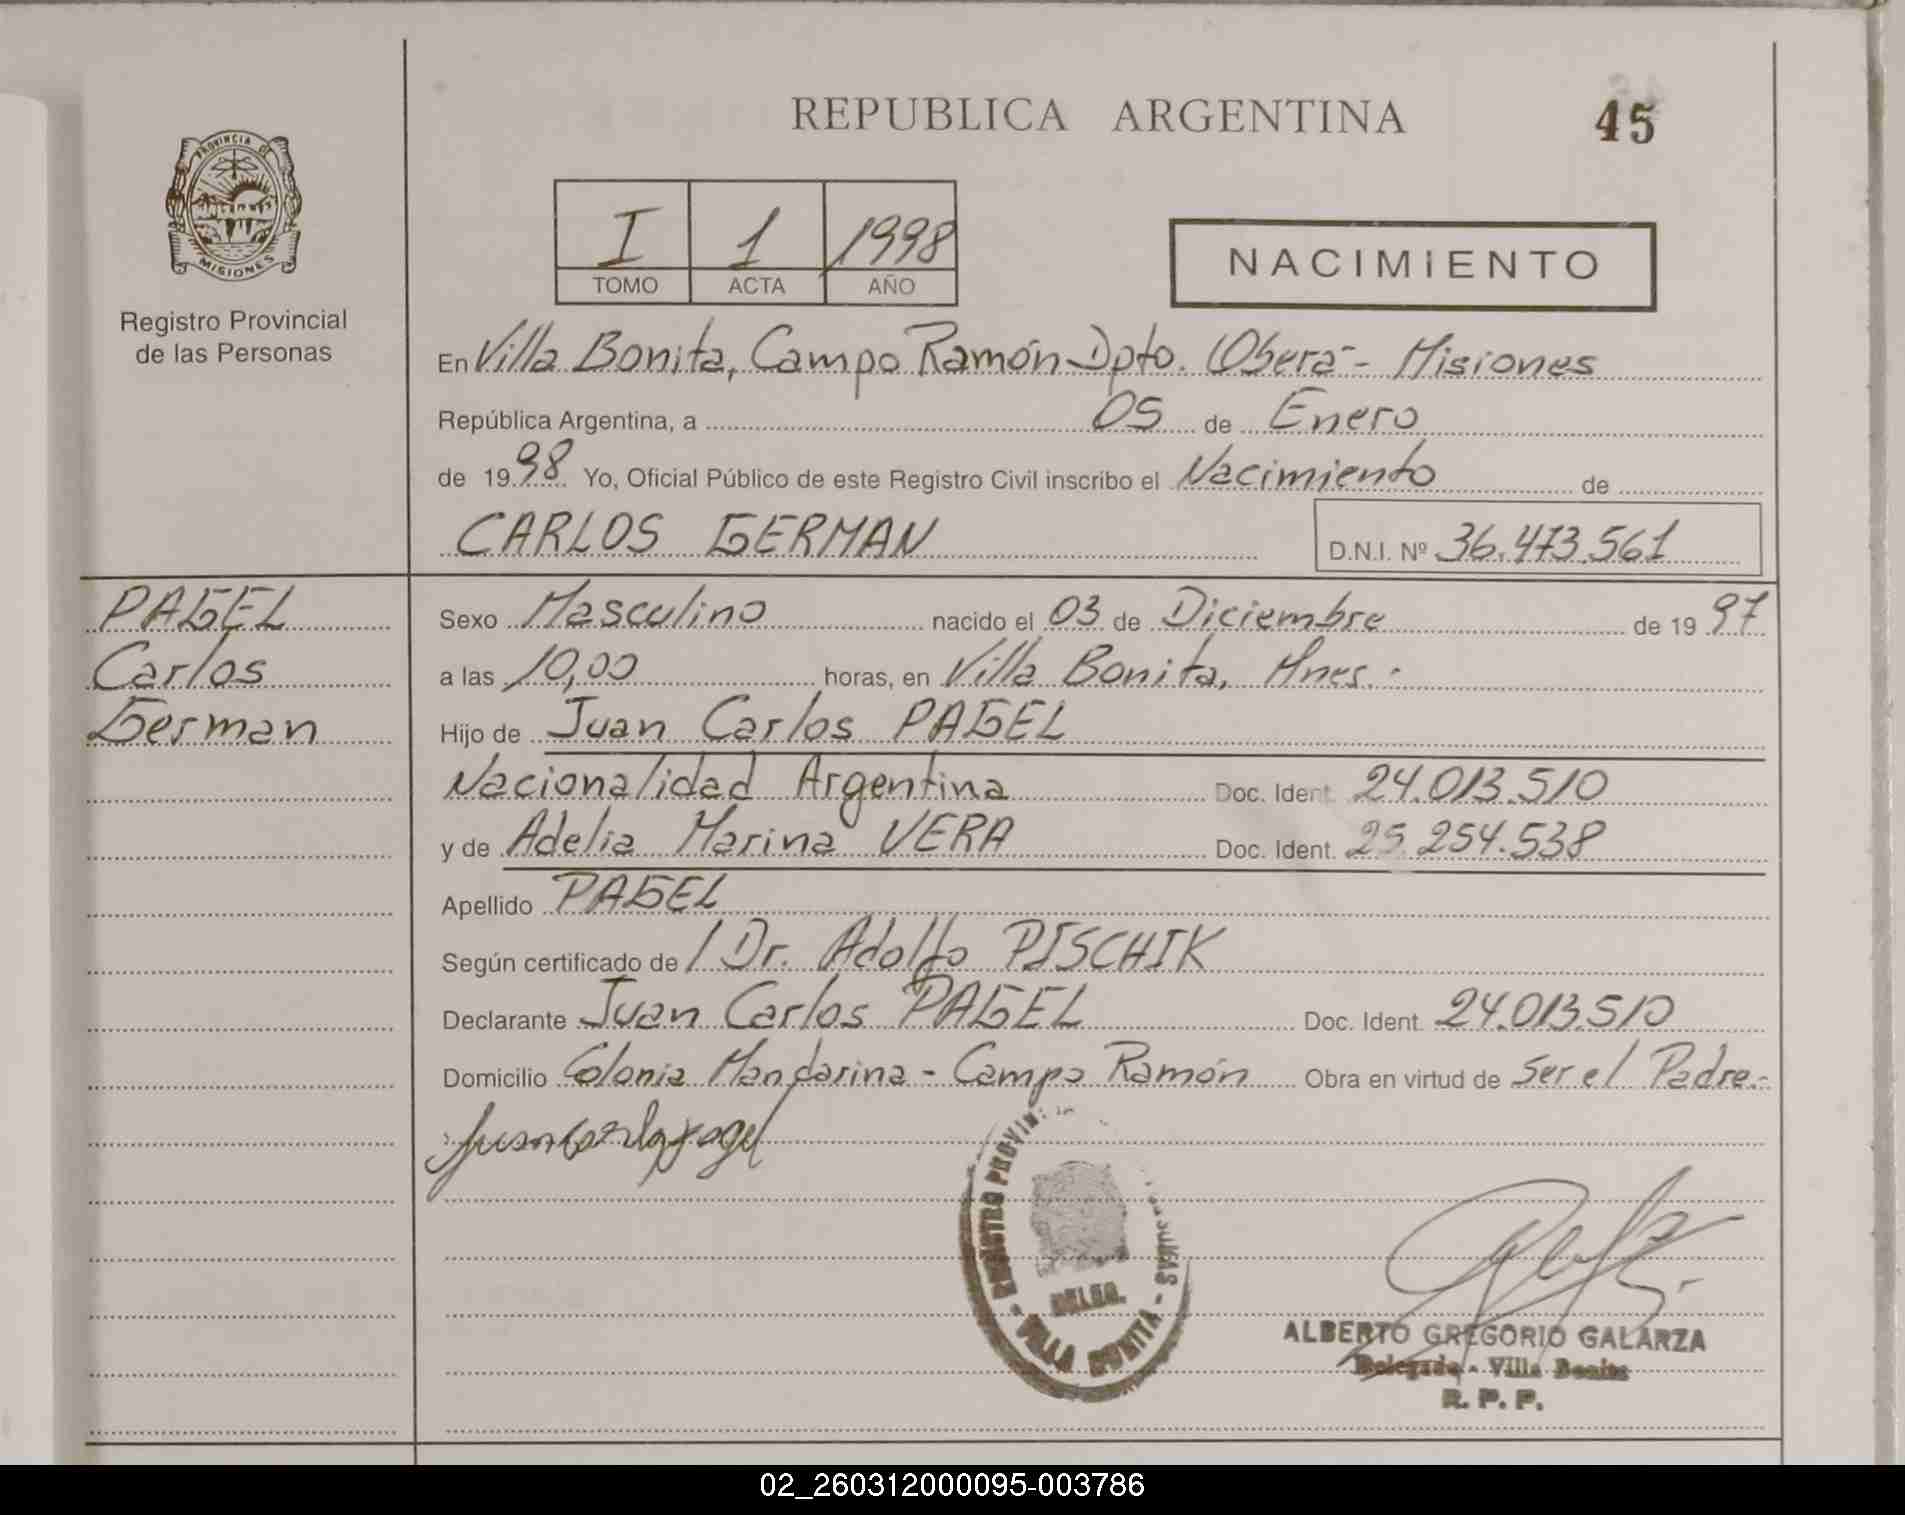 REPUBLICA ARGENTINA
45
PROVINCIA DE
MISIONES
Registro Provincial
de las Personas
I 1 1998
TOMO ACTA AÑO
NACIMIENTO
En Villa Bonita, Campo Ramón Dpto. Oberá - Misiones
República Argentina, a 05 de Enero
de 1998 Yo, Oficial Público de este Registro Civil inscribo el Nacimiento de
CARLOS GERMAN D.N.I. Nº 36.473.561
PAGEL
Carlos
German
Sexo Masculino nacido el 03 de Diciembre de 1997
a las 10,00 horas, en Villa Bonita, Mnes.-
Hijo de Juan Carlos PAGEL
Nacionalidad Argentina Doc. Ident. 24.013.510
y de Adelia Marina VERA Doc. Ident. 25.254.538
Apellido PAGEL
Según certificado de / Dr. Adolfo PISCHIK
Declarante Juan Carlos PAGEL Doc. Ident. 24.013.510
Domicilio Colonia Mandarina - Campo Ramón Obra en virtud de Ser el Padre.-
Juan Carlos Pagel
REGISTRO PROVIN
DELEG.
- VILLA BONITA -
ALBERTO GREGORIO GALARZA
Delegado - Villa Bonita
R. P. P.
02_260312000095-003786